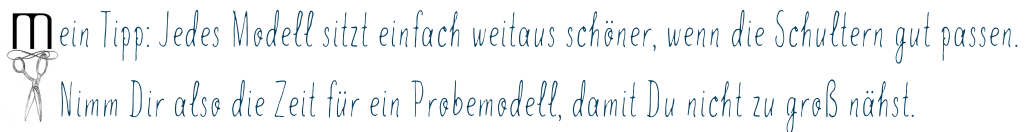 Mein Tipp: Jedes Modell sitzt einfach weitaus schöner, wenn die Schultern gut passen.
Nimm Dir also die Zeit für ein Probemodell, damit Du nicht zu groß nähst.